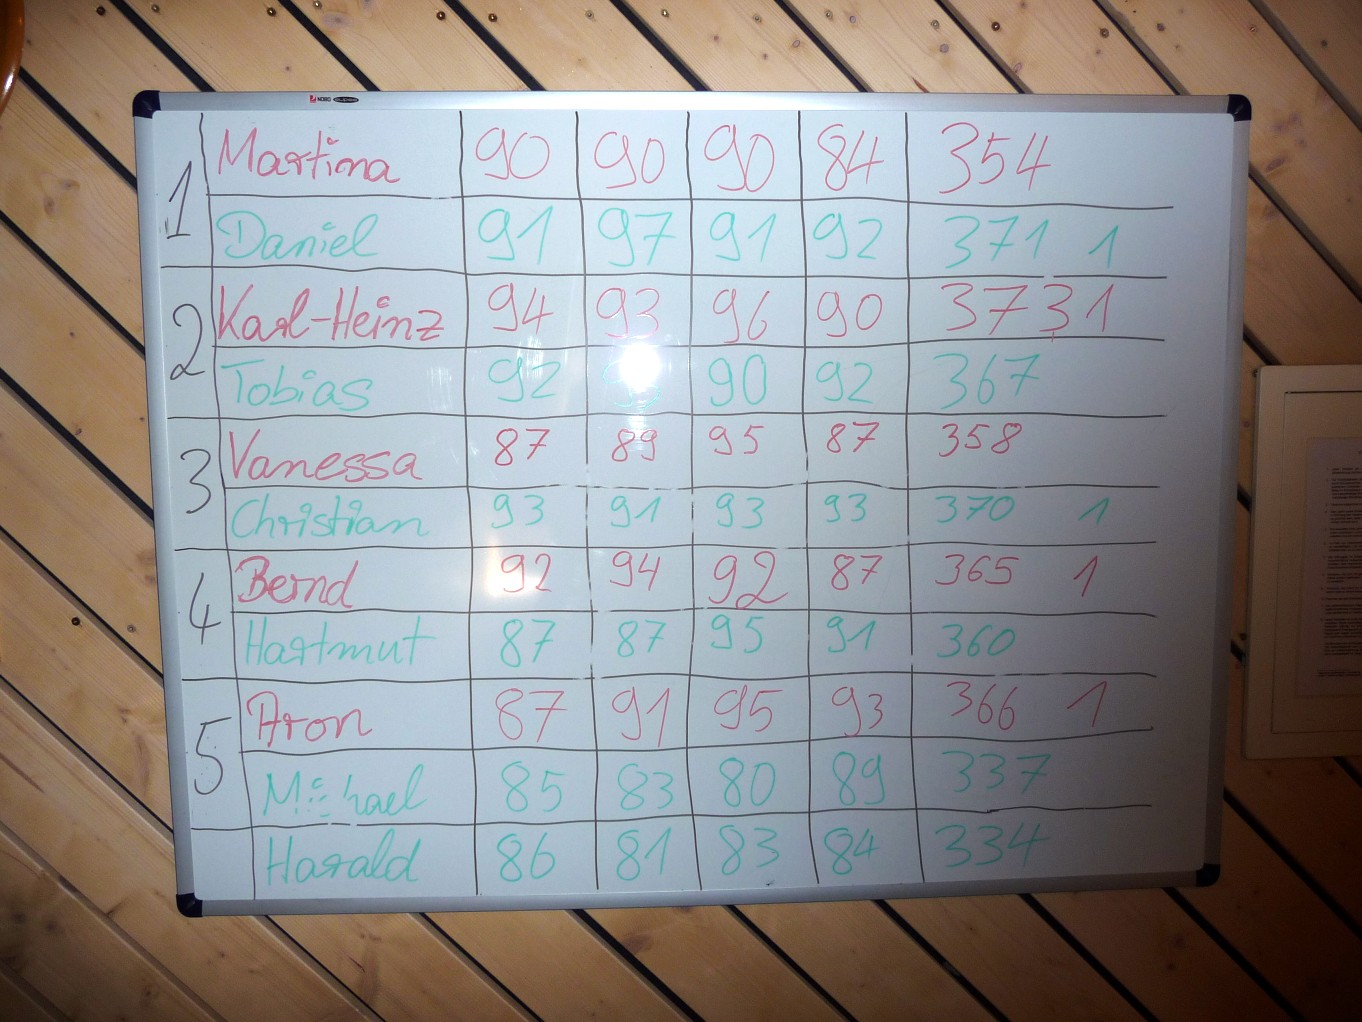 NOBO
1
Martina 90 90 90 84 354
Daniel 91 97 91 92 371 1
2
Karl-Heinz 94 93 96 90 373 1
Tobias 92 90 92 367
3
Vanessa 87 89 95 87 358
Christian 93 91 93 93 370 1
4
Bernd 92 94 92 87 365 1
Hartmut 87 87 95 91 360
5
Aron 87 91 95 93 366 1
Michael 85 83 80 89 337
Harald 86 81 83 84 334